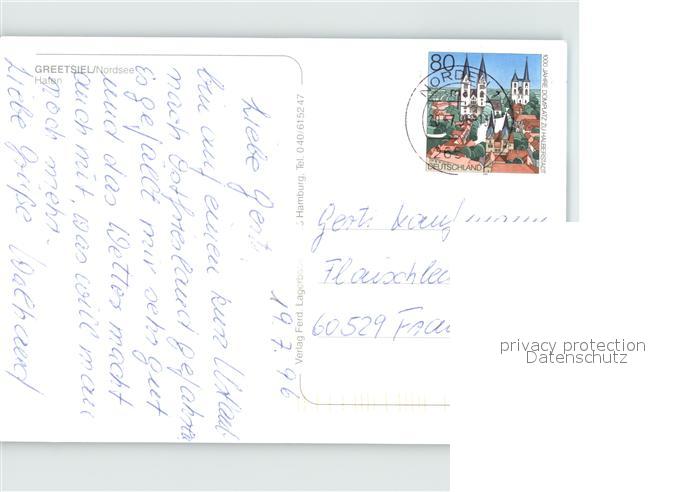 GREETSIEL/Nordsee
Hafen
19.7.96
Liebe Gerti,
bin auf einen kurz Urlaub
nach Ostfriesland gefahren
Es gefällt mir sehr gut
und das Wetter macht
auch mit, was will man
noch mehr.
Liebe Grüße Waltraud
Verlag Ferd. Lagerbau Hamburg, Tel. 040/615247
80
DEUTSCHLAND
1000 JAHRE DOMPLATZ ZU HALBERSTADT
NORDEN
Gerti Kaufmann
60529
privacy protection
Datenschutz